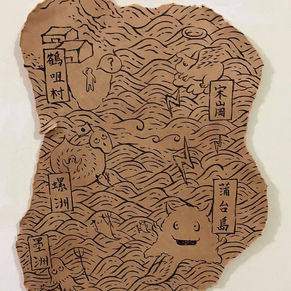 鶴咀村
宋崗
螺洲
蒲台島
墨洲